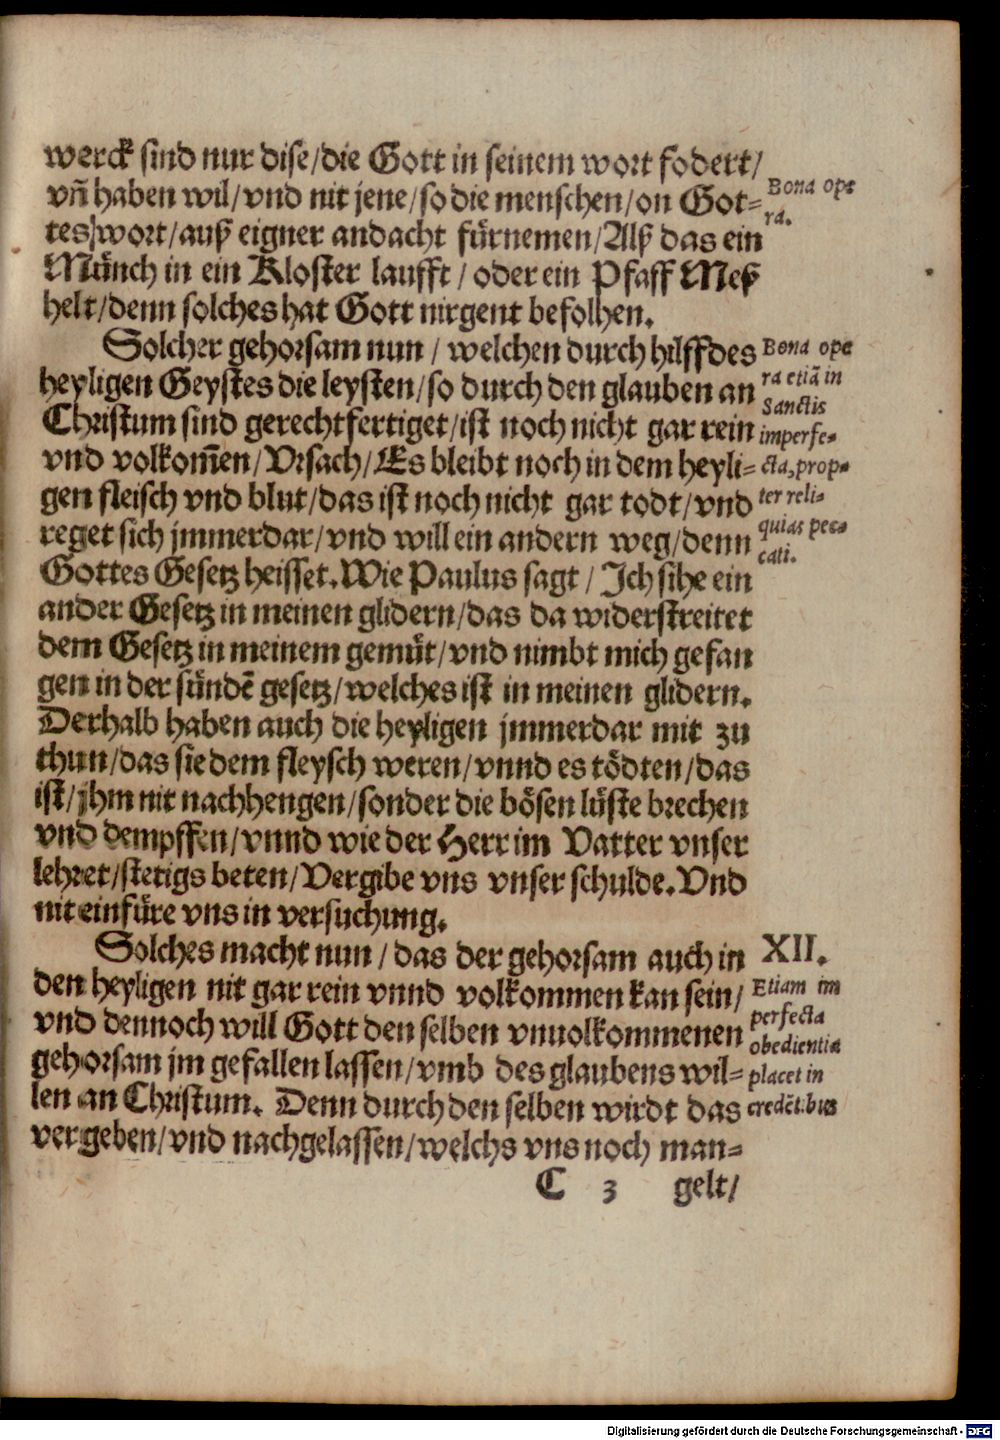 werck sind nur dise/die Gott in seinem wort fodert/
vñ haben wil/vnd nit jene/so die menschen/on Got⸗
tes wort/auß eigner andacht fürnemen/Alß das ein
Münch in ein Kloster laufft/oder ein Pfaff Meß
helt/denn solches hat Gott nirgent befolhen.
Bona ope
ra.
Solcher gehorsam nun/welchen durch hilff des
heyligen Geystes die leysten/so durch den glauben an
Christum sind gerechtfertiget/ist noch nicht gar rein
vnd volkom̃en/Vrsach/Es bleibt noch in dem heyli⸗
gen fleisch vnd blut/das ist noch nicht gar todt/vnd
reget sich jmmerdar/vnd will ein andern weg/denn
Gottes Gesetz heisset.Wie Paulus sagt/Ich sihe ein
ander Gesetz in meinen glidern/das da widerstreitet
dem Gesetz in meinem gemüt/vnd nimbt mich gefan
gen in der sündẽ gesetz/welches ist in meinen glidern.
Derhalb haben auch die heyligen jmmerdar mit zu
thun/das sie dem fleysch weren/vnnd es tödten/das
ist/jhm nit nachhengen/sonder die bösen lüste brechen
vnd dempffen/vnnd wie der Herr im Vatter vnser
lehret/stetigs beten/Vergibe vns vnser schulde.Vnd
nit einfüre vns in versuchung.
Bona ope
ra etiã in
Sanctis
imperfe⸗
cta, prop⸗
ter reli⸗
quias pec⸗
cati.
Solches macht nun/das der gehorsam auch in
den heyligen nit gar rein vnnd volkommen kan sein/
vnd dennoch will Gott den selben vnuolkommenen
gehorsam jm gefallen lassen/vmb des glaubens wil⸗
len an Christum. Denn durch den selben wirdt das
vergeben/vnd nachgelassen/welchs vns noch man⸗
XII.
Etiam im
perfecta
obedientia
placet in
credẽtibus
C 3 gelt/
Digitalisierung gefördert durch die Deutsche Forschungsgemeinschaft - DFG